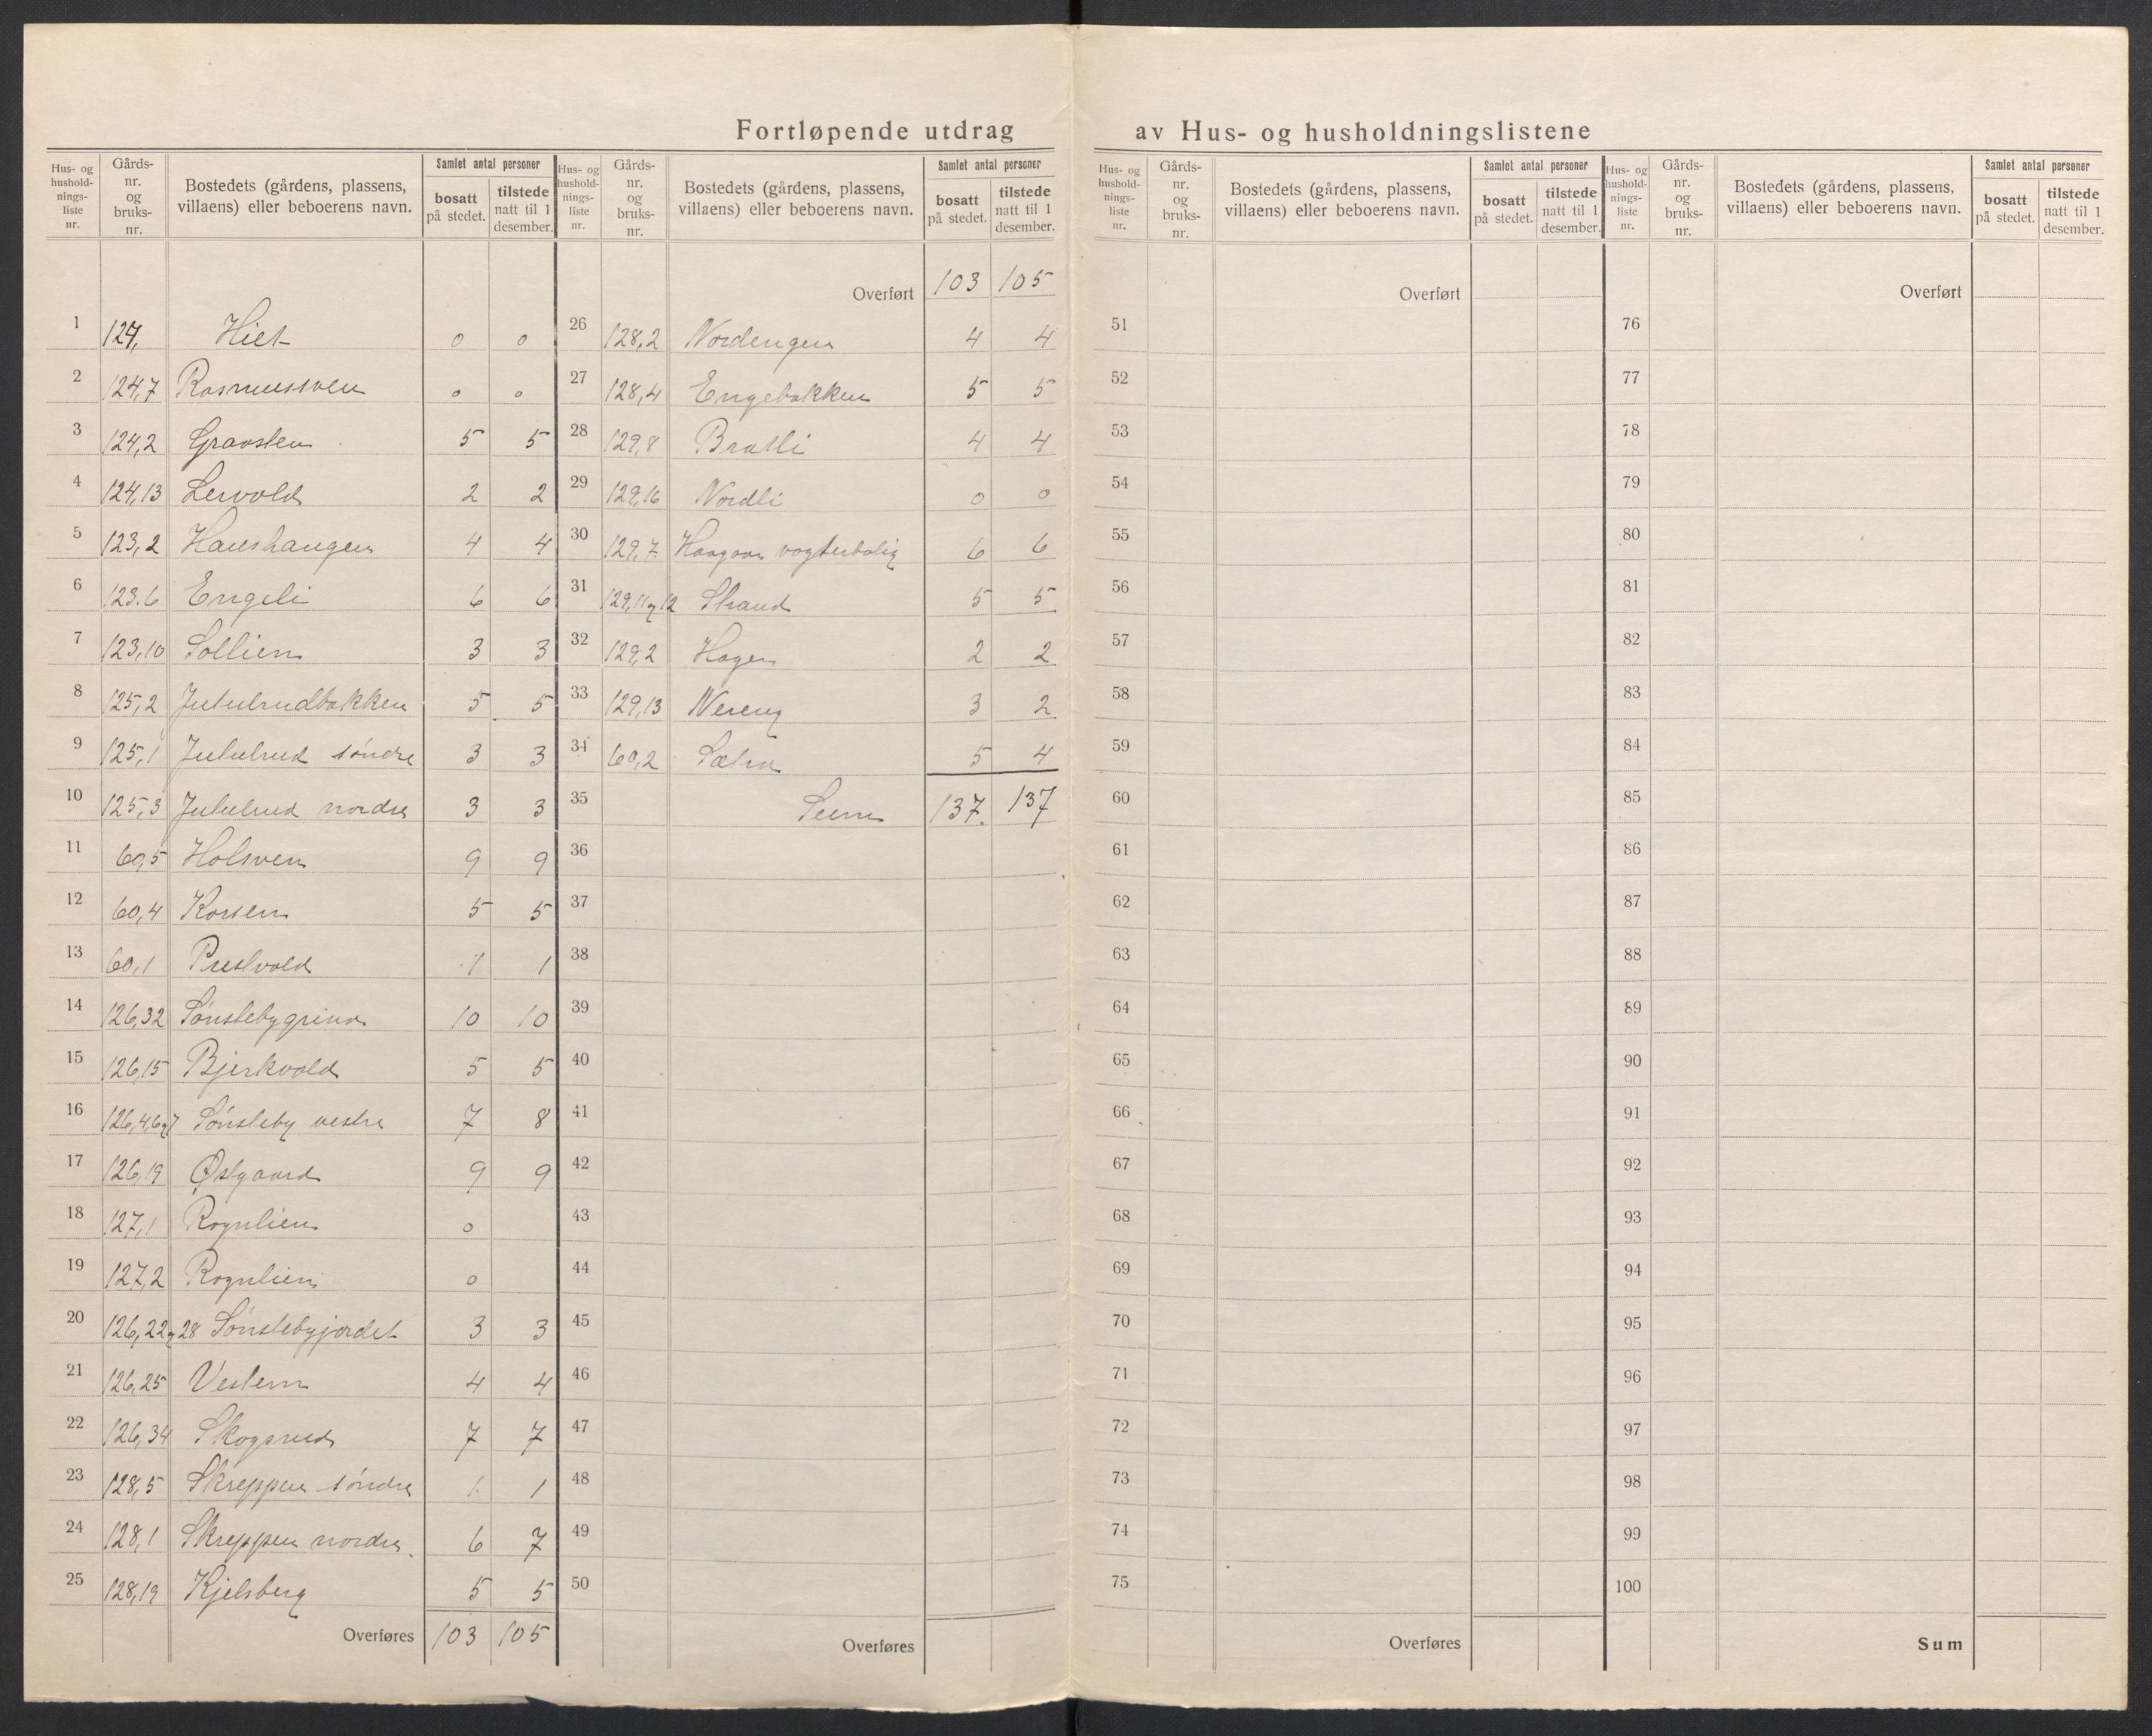 Fortløpende utdrag av Hus- og husholdningslistene
Hus- og husholdnings-liste nr. | Gårds-nr. og bruks-nr. | Bostedets (gårdens, plassens, villaens) eller beboerens navn. | Samlet antal personer | bosatt på stedet. | tilstede natt til 1 desember.
1 124, Hiet 0 0
2 124,7 Rasmussven 0 0
3 124,2 Gravsten 5 5
4 124,13 Lervold 2 2
5 123,2 Haushaugen 4 4
6 123.6 Engeli 6 6
7 123,10 Sollien 3 3
8 125,2 Jutulrudbakken 5 5
9 125,1 Jutulrud søndre 3 3
10 125,3 Jutulrud nordre 3 3
11 60,5 Holsven 9 9
12 60,4 Korsen 5 5
13 60,1 Prestvold 1 1
14 126,32 Sønstebygrina 10 10
15 126,15 Bjerkvold 5 5
16 126,4,6 og 7 Sønsteby vestre 7 8
17 126,19 Østgaard 9 9
18 127,1 Rognlien 0
19 127,2 Rognlien 0
20 126,22 og 28 Sønstebyjordet 3 3
21 126,25 Vestern 4 4
22 126,34 Skogsrud 7 7
23 128,5 Skreppen søndre 1 1
24 128,1 Skreppen nordre 6 7
25 128,19 Kjelsberg 5 5
Overføres 103 105
Hus- og husholdnings-liste nr. | Gårds-nr. og bruks-nr. | Bostedets (gårdens, plassens, villaens) eller beboerens navn. | Samlet antal personer | bosatt på stedet. | tilstede natt til 1 desember.
Overført 103 105
26 128,2 Nordengen 4 4
27 128,4 Engebakken 5 5
28 129,8 Bratli 4 4
29 129,16 Nordli 0 0
30 129,7. Haagaar vogterbolig 6 6
31 129,11 og 12 Strand 5 5
32 129,2 Hagen 2 2
33 129,13 Nereng 3 2
34 60,2 Sætra 5 4
35 Sum 137. 137
36
37
38
39
40
41
42
43
44
45
46
47
48
49
50
Overføres
Hus- og husholdnings-liste nr. | Gårds-nr. og bruks-nr. | Bostedets (gårdens, plassens, villaens) eller beboerens navn. | Samlet antal personer | bosatt på stedet. | tilstede natt til 1 desember.
Overført
51
52
53
54
55
56
57
58
59
60
61
62
63
64
65
66
67
68
69
70
71
72
73
74
75
Overføres
Hus- og husholdnings-liste nr. | Gårds-nr. og bruks-nr. | Bostedets (gårdens, plassens, villaens) eller beboerens navn. | Samlet antal personer | bosatt på stedet. | tilstede natt til 1 desember.
Overført
76
77
78
79
80
81
82
83
84
85
86
87
88
89
90
91
92
93
94
95
96
97
98
99
100
Sum